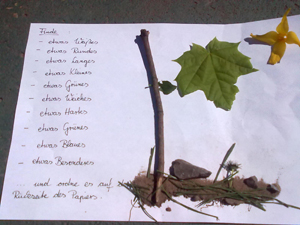 Finde
- etwas Weißes
- etwas Rundes
- etwas Langes
- etwas Kleines
- etwas Grünes
- etwas Weiches
- etwas Hartes
- etwas Grünes
- etwas Blaues
- etwas Besonderes
... und ordne es auf
Rückseite des Papiers.